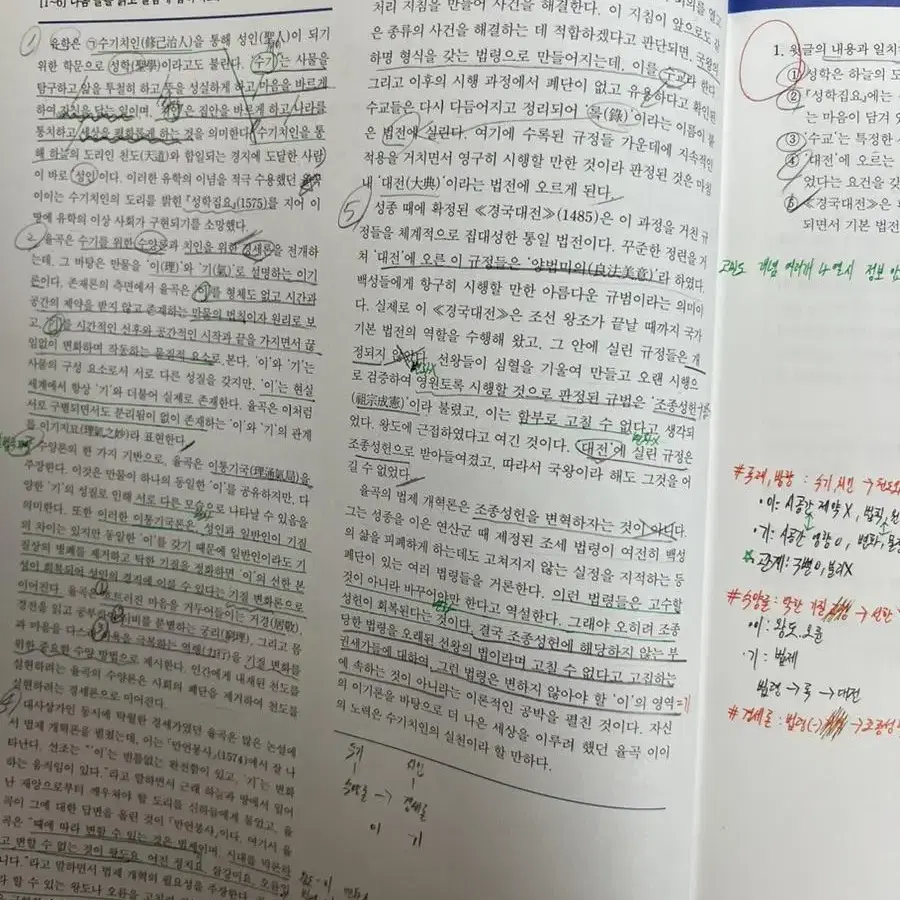 유학은 ㉠수기치인(修己治人)을 통해 성인(聖人)이 되기
위한 학문으로 성학(聖學)이라고도 불린다. '수기'는 사물을
탐구하고 앎을 투철히 하고 뜻을 성실하게 하고 마음을 바르게
하여 자신을 닦는 일이며, '치인'은 집안을 바르게 하고 나라를
통치하고 세상을 평화롭게 하는 것을 의미한다. 수기치인을 통
해 하늘의 도리인 천도(天道)와 합일되는 경지에 도달한 사람
이 바로 성인이다. 이러한 유학의 이념을 적극 수용했던 율곡
이이는 수기치인의 도리를 밝힌 『성학집요』(1575)를 지어 이
땅에 유학의 이상 사회가 구현되기를 소망했다.
율곡은 수기를 위한 수양론과 치인을 위한 경세론을 전개하
는데, 그 바탕은 만물을 '이(理)'와 '기(氣)'로 설명하는 이기
론이다. 존재론의 측면에서 율곡은 '이'를 형체도 없고 시간과
공간의 제약을 받지 않고 존재하는 만물의 법칙이자 원리로 보
고, '기'를 시간적인 선후와 공간적인 시작과 끝을 가지면서 끊
임없이 변화하며 작동하는 물질적 요소로 본다. '이'와 '기'는
사물의 구성 요소로서 서로 다른 성질을 갖지만, '이'는 현실
세계에서 항상 '기'와 더불어 실제로 존재한다. 율곡은 이처럼
서로 구별되면서도 분리됨이 없이 존재하는 '이'와 '기'의 관계
를 이기지묘(理氣之妙)라 표현한다.
수양론의 한 가지 기반으로, 율곡은 이통기국(理通氣局)을
주장한다. 이것은 만물이 하나의 동일한 '이'를 공유하지만, 다
양한 '기'의 성질로 인해 서로 다른 모습으로 나타날 수 있음을
의미한다. 또한 이러한 이통기국론은, 성인과 일반인이 기질
의 차이는 있지만 동일한 '이'를 갖기 때문에 일반인이라도 기
질상의 병폐를 제거하고 탁한 기질을 정화하면 '이'의 선한 본
성이 회복되어 성인의 경지에 이를 수 있다는 기질 변화론으로
이어진다. 율곡은 흐트러진 마음을 거두어들이는 거경(居敬),
경전을 읽고 공부하여 시비를 분별하는 궁리(窮理), 그리고 몸
과 마음을 다스려 사욕을 극복하는 역행(力行)을 기질 변화를
위한 중요한 수양 방법으로 제시한다. 인간에게 내재된 천도를
실현하려는 율곡의 수양론은 사회의 폐단을 제거하여 천도를
실현하려는 경세론으로 이어진다.
대사상가인 동시에 탁월한 경세가였던 율곡은 많은 논설에
서 법제 개혁론을 펼쳤는데, 이는 「만언봉사」(1574)에서 잘 나
타난다. 선조는 "'이'는 빈틈없는 완전함이 있고, '기'는 변화
하는 움직임이 있다."라고 말하면서 근래 하늘과 땅에서 일어
난 재앙으로부터 깨우쳐야 할 도리를 신하들에게 물었고, 율
곡이 그에 대한 답변을 올린 것이 「만언봉사」이다. 여기서 율
곡은 "때에 따라 변할 수 있는 것은 법제이며, 시대를 막론하
고 변할 수 없는 것이 왕도요 어진 정치요 삼강이요 오륜입
니다."라고 말하면서 법제 개혁의 필요성을 주장한다.
처리 지침을 만들어 사건을 해결한다. 이 지침이 앞으로도 같
은 종류의 사건을 해결하는 데 적합하겠다고 판단되면, 국왕의
하명 형식을 갖는 법령으로 만들어지는데, 이를 수교라 한다.
그리고 이후의 시행 과정에서 폐단이 없고 유용하다고 확인된
수교들은 다시 다듬어지고 정리되어 '록(錄)'이라는 이름이 붙
은 법전에 실린다. 여기에 수록된 규정들 가운데에 지속적인
적용을 거치면서 영구히 시행할 만한 것이라 판정된 것은 마침
내 '대전(大典)'이라는 법전에 오르게 된다.
성종 때에 확정된 《경국대전》(1485)은 이 과정을 거친 규
정들을 체계적으로 집대성한 통일 법전이다. 꾸준한 정련을 거
쳐 '대전'에 오른 이 규정들은 '양법미의(良法美意)'라 하였다.
백성들에게 항구히 시행할 만한 아름다운 규범이라는 의미이
다. 실제로 이 《경국대전》은 조선 왕조가 끝날 때까지 국가
기본 법전의 역할을 수행해 왔고, 그 안에 실린 규정들은 개
정되지 않았다. 선왕들이 심혈을 기울여 만들고 오랜 시행으
로 검증하여 영원토록 시행할 것으로 판정된 규범은 '조종성헌
(祖宗成憲)'이라 불렸고, 이는 함부로 고칠 수 없다고 생각되
었다. 왕도에 근접하였다고 여긴 것이다. '대전'에 실린 규정은
조종성헌으로 받아들여졌고, 따라서 국왕이라 해도 그것을 어
길 수 없었다.
율곡의 법제 개혁론은 조종성헌을 변혁하자는 것이 아니다.
그는 성종을 이은 연산군 때 제정된 조세 법령이 여전히 백성
의 삶을 피폐하게 하는데도 고쳐지지 않는 실정을 지적하는 등
폐단이 있는 여러 법령들을 거론한다. 이런 법령들은 고수할
것이 아니라 바꾸어야만 한다고 역설한다. 그래야 오히려 조종
성헌이 회복된다는 것이다. 결국 조종성헌에 해당하지 않는 부
당한 법령을 오래된 선왕의 법이라며 고칠 수 없다고 고집하는
권세가들에 대하여, 그런 법령은 변하지 않아야 할 '이'의 영역 =기
에 속하는 것이 아니라는 이론적인 공박을 펼친 것이다. 자신
의 이기론을 바탕으로 더 나은 세상을 이루려 했던 율곡 이이
의 노력은 수기치인의 실천이라 할 만하다.
수기 치인
수양론 → 경세론
이 기
1. 윗글의 내용과 일치
① 성학은 하늘의 도
② 『성학집요』에는
는 마음이 담겨 있
③ '수교'는 특정한
④ '대전'에 오르는
었다는 요건을 갖
⑤ 《경국대전》은
되면서 기본 법전
·이: 시공간 제약X, 법칙, 원
관계: 구별O, 분리X
·이: 왕도, 오륜
·기: 법제
법령 → 록 → 대전